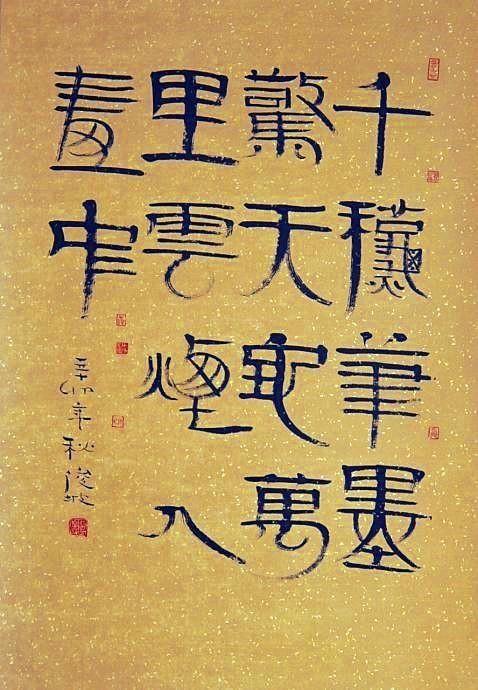 千龝筆墨
驚天地萬
里雲煙入
畫中
辛卯年秋